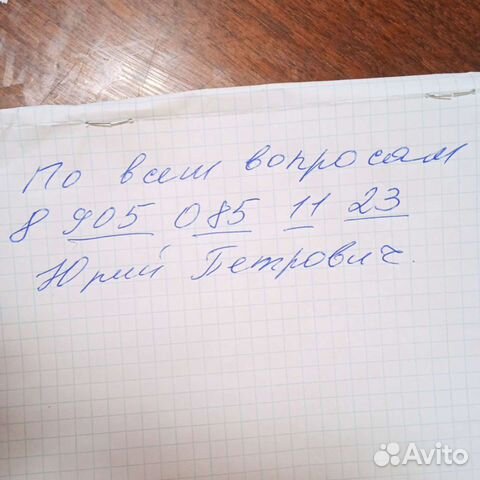 По всем вопросам
8 905 085 11 23
Юрий Петрович.
Avito